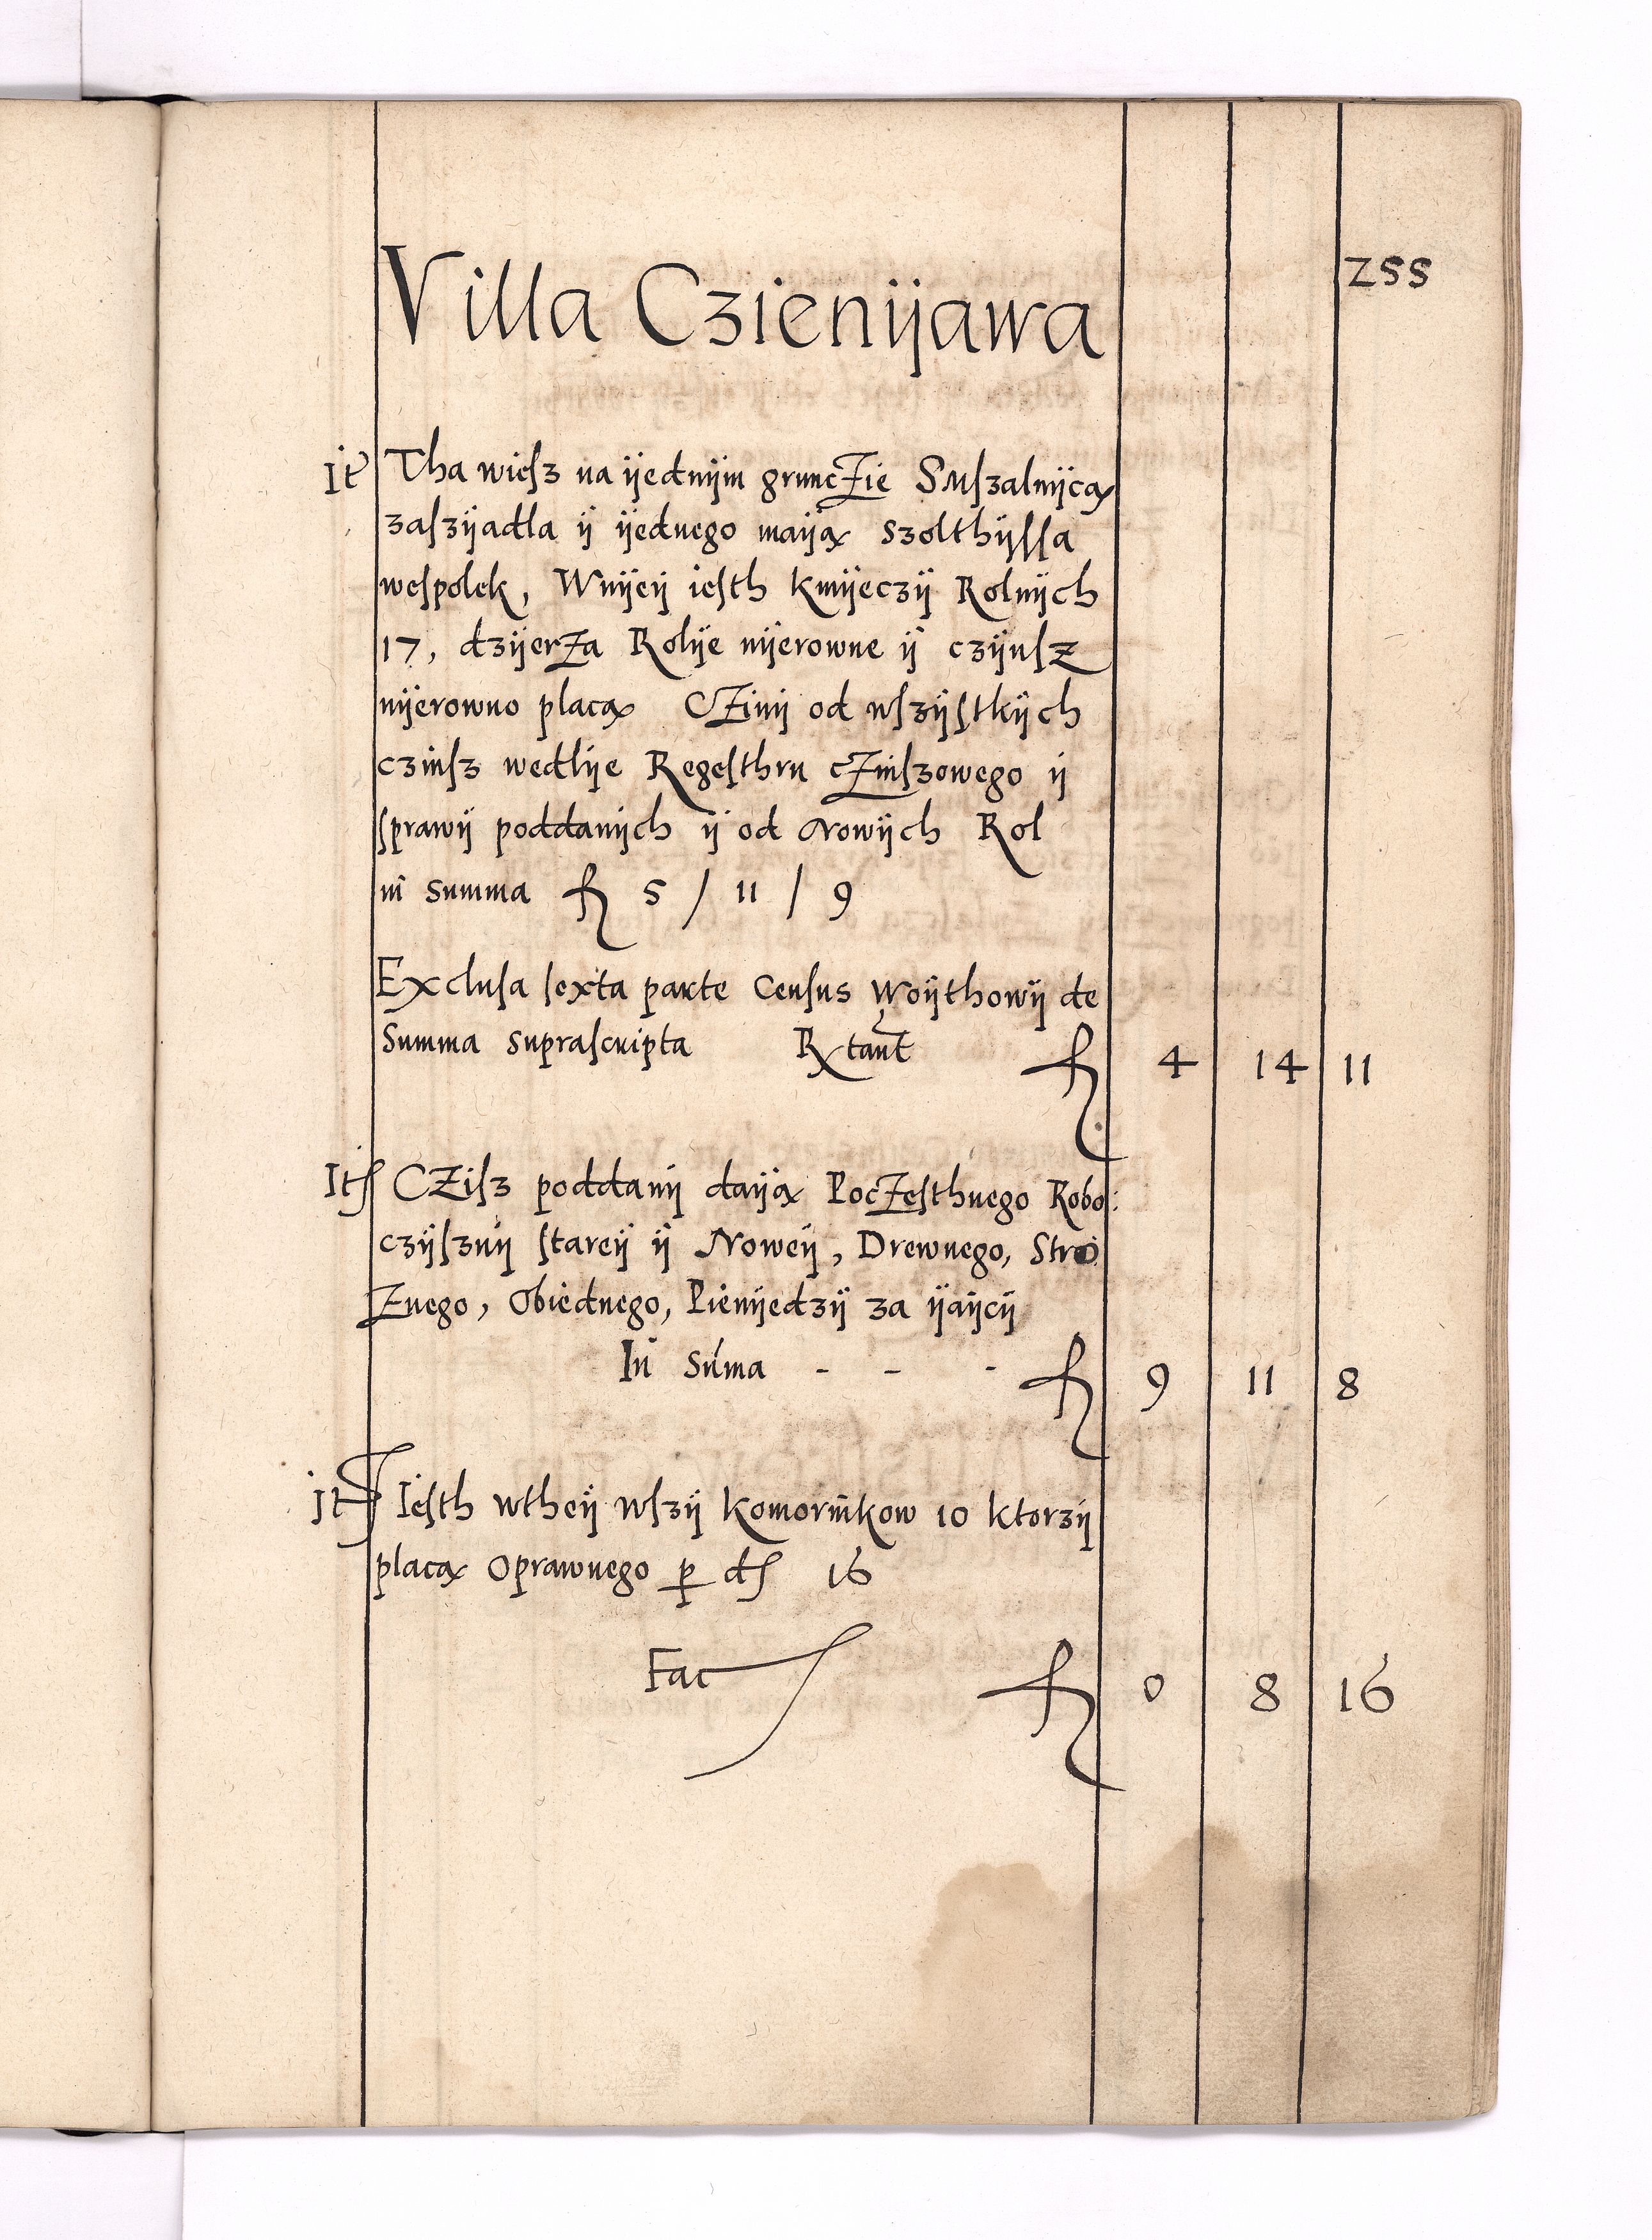 255
Villa Czienijawa
It Tha wiesz na ijednijm gruncZie Suszalnijcą
zaszijadla ij ijednego maiją szolthijssa
wespolek, Wnijeij iesth kmijeczij Rolnijch
17, dzijerZa Rolije nijerowne ij czijnsz
nijerowno placą CZinij od wszijstkijch
czinsz wedlije Regesthru cZinszowego ij
sprawij poddanijch ij od Nowijch Rol
in summa fl 5 / 11 / 9
Exclusa sexta parte Census Woijthowij de
summa suprascripta Rxtant fl 4 14 11
It CZisz poddanij daiją PocZesthnego Robo:
czijsznij stareij ij Noweij, Drewnego, Stro
Znego, Obiednego, Pienijedzij za ijaijcij
In Suma - - - fl 9 11 8
It Iesth wtheij wszij komornikow 10 ktorzij
placą Oprawnego p d 16
Fac fl 0 8 16